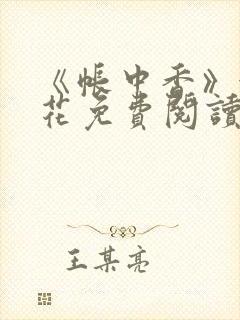 《帳中香》
花免費閱讀
王某亮